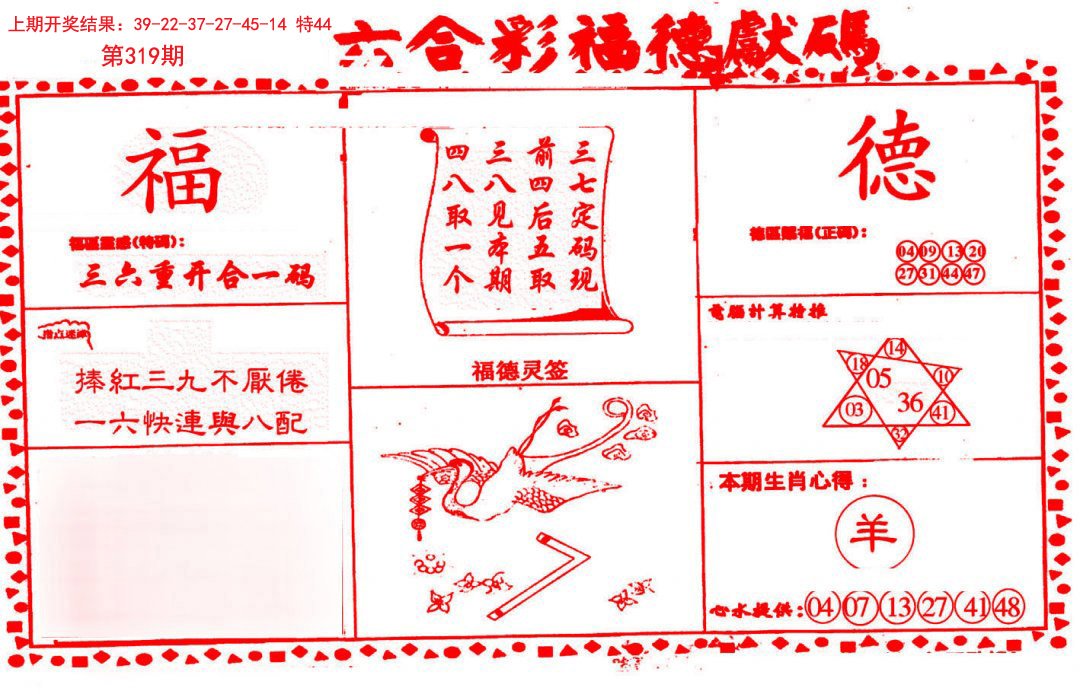 上期开奖结果：39-22-37-27-45-14 特44
第319期
六合彩福德獻碼
福
福區靈感(特碼)：
三六重开合一码
指点迷津
捧紅三九不厭倦
一六快連與八配
三七定码现
前四后五取
三八见本期
四八取一个
福德灵签
德
德區賜福(正碼)：
04 09 13 20
27 31 44 47
電腦計算特推
14
18 05 10
03 36 41
32
本期生肖心得：
羊
心水提供：04 07 13 27 41 48